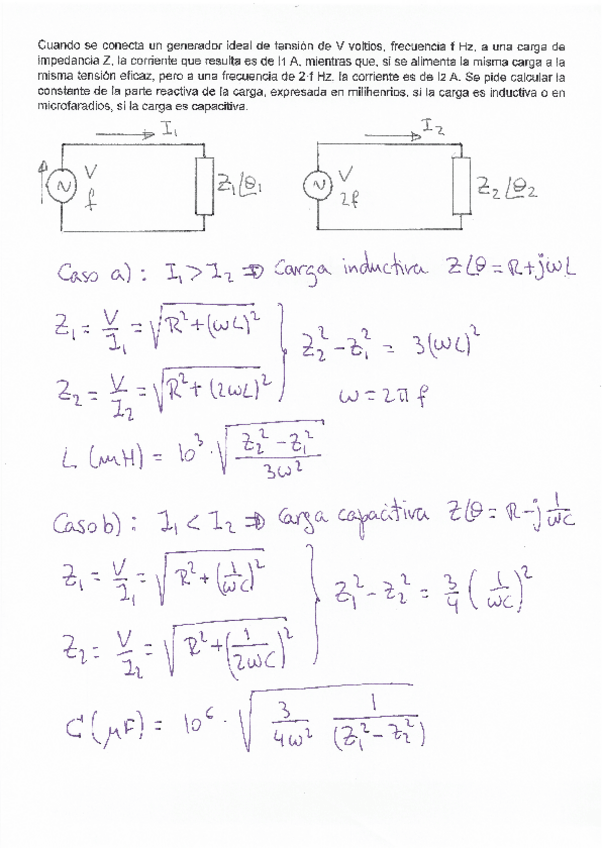 Cuando se conecta un generador ideal de tensión de V voltios, frecuencia f Hz, a una carga de
impedancia Z, la corriente que resulta es de I1 A, mientras que, si se alimenta la misma carga a la
misma tensión eficaz, pero a una frecuencia de 2·f Hz, la corriente es de I2 A. Se pide calcular la
constante de la parte reactiva de la carga, expresada en milihenrios, si la carga es inductiva o en
microfaradios, si la carga es capacitiva.
I₁ I₂
V f Z₁∠θ₁ V 2f Z₂∠θ₂
Caso a) : I₁ > I₂ ⇒ Carga inductiva Z∠θ = R+jωL
Z₁ = V/I₁ = √(R²+(ωL)²)
Z₂² − Z₁² = 3(ωL)²
Z₂ = V/I₂ = √(R²+(2ωL)²)
ω = 2π f
L (mH) = 10³ · √((Z₂² − Z₁²)/(3ω²))
Caso b) : I₁ < I₂ ⇒ Carga capacitiva Z∠θ = R−j 1/(ωC)
Z₁ = V/I₁ = √(R²+(1/(ωC))²)
Z₁² − Z₂² = 3/4 (1/(ωC))²
Z₂ = V/I₂ = √(R²+(1/(2ωC))²)
C (μF) = 10⁶ · √(3/(4ω²) 1/(Z₁² − Z₂²))